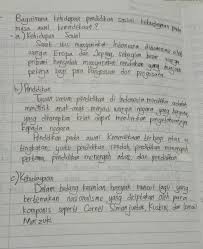 Bagaimana kehidupan pendidikan sosial kebudayaan pada
masa awal kemerdekaan?
- a.) Kehidupan Sosial
Saat itu masyarakat Indonesia
warga Eropa dan Jepang sebagian besar warga
pribumi masyarakat rendahan yang menjadi
pekerja bagi para bangsawan dan penguasa.
b.) Pendidikan
Tujuan umum pendidikan di Indonesia merdeka adalah
mendidik anak-anak menjadi warga negara yang berguna,
yang diharapkan kelak dapat memberikan pengetahuannya
kepada negara.
Pendidikan pada awal Kemerdekaan terbagi atas 4
tingkatan, yaitu pendidikan rendah, pendidikan menengah
pertama, pendidikan menengah atas, dan pendidikan
c.) Kebudayaan
Dalam bidang kesenian banyak muncul lagu yang
bertemakan nasionalisme yang diciptakan oleh para
komposis seperti Cornel Simanjuntak, Kusbini, dan Ismail
Marzuki.